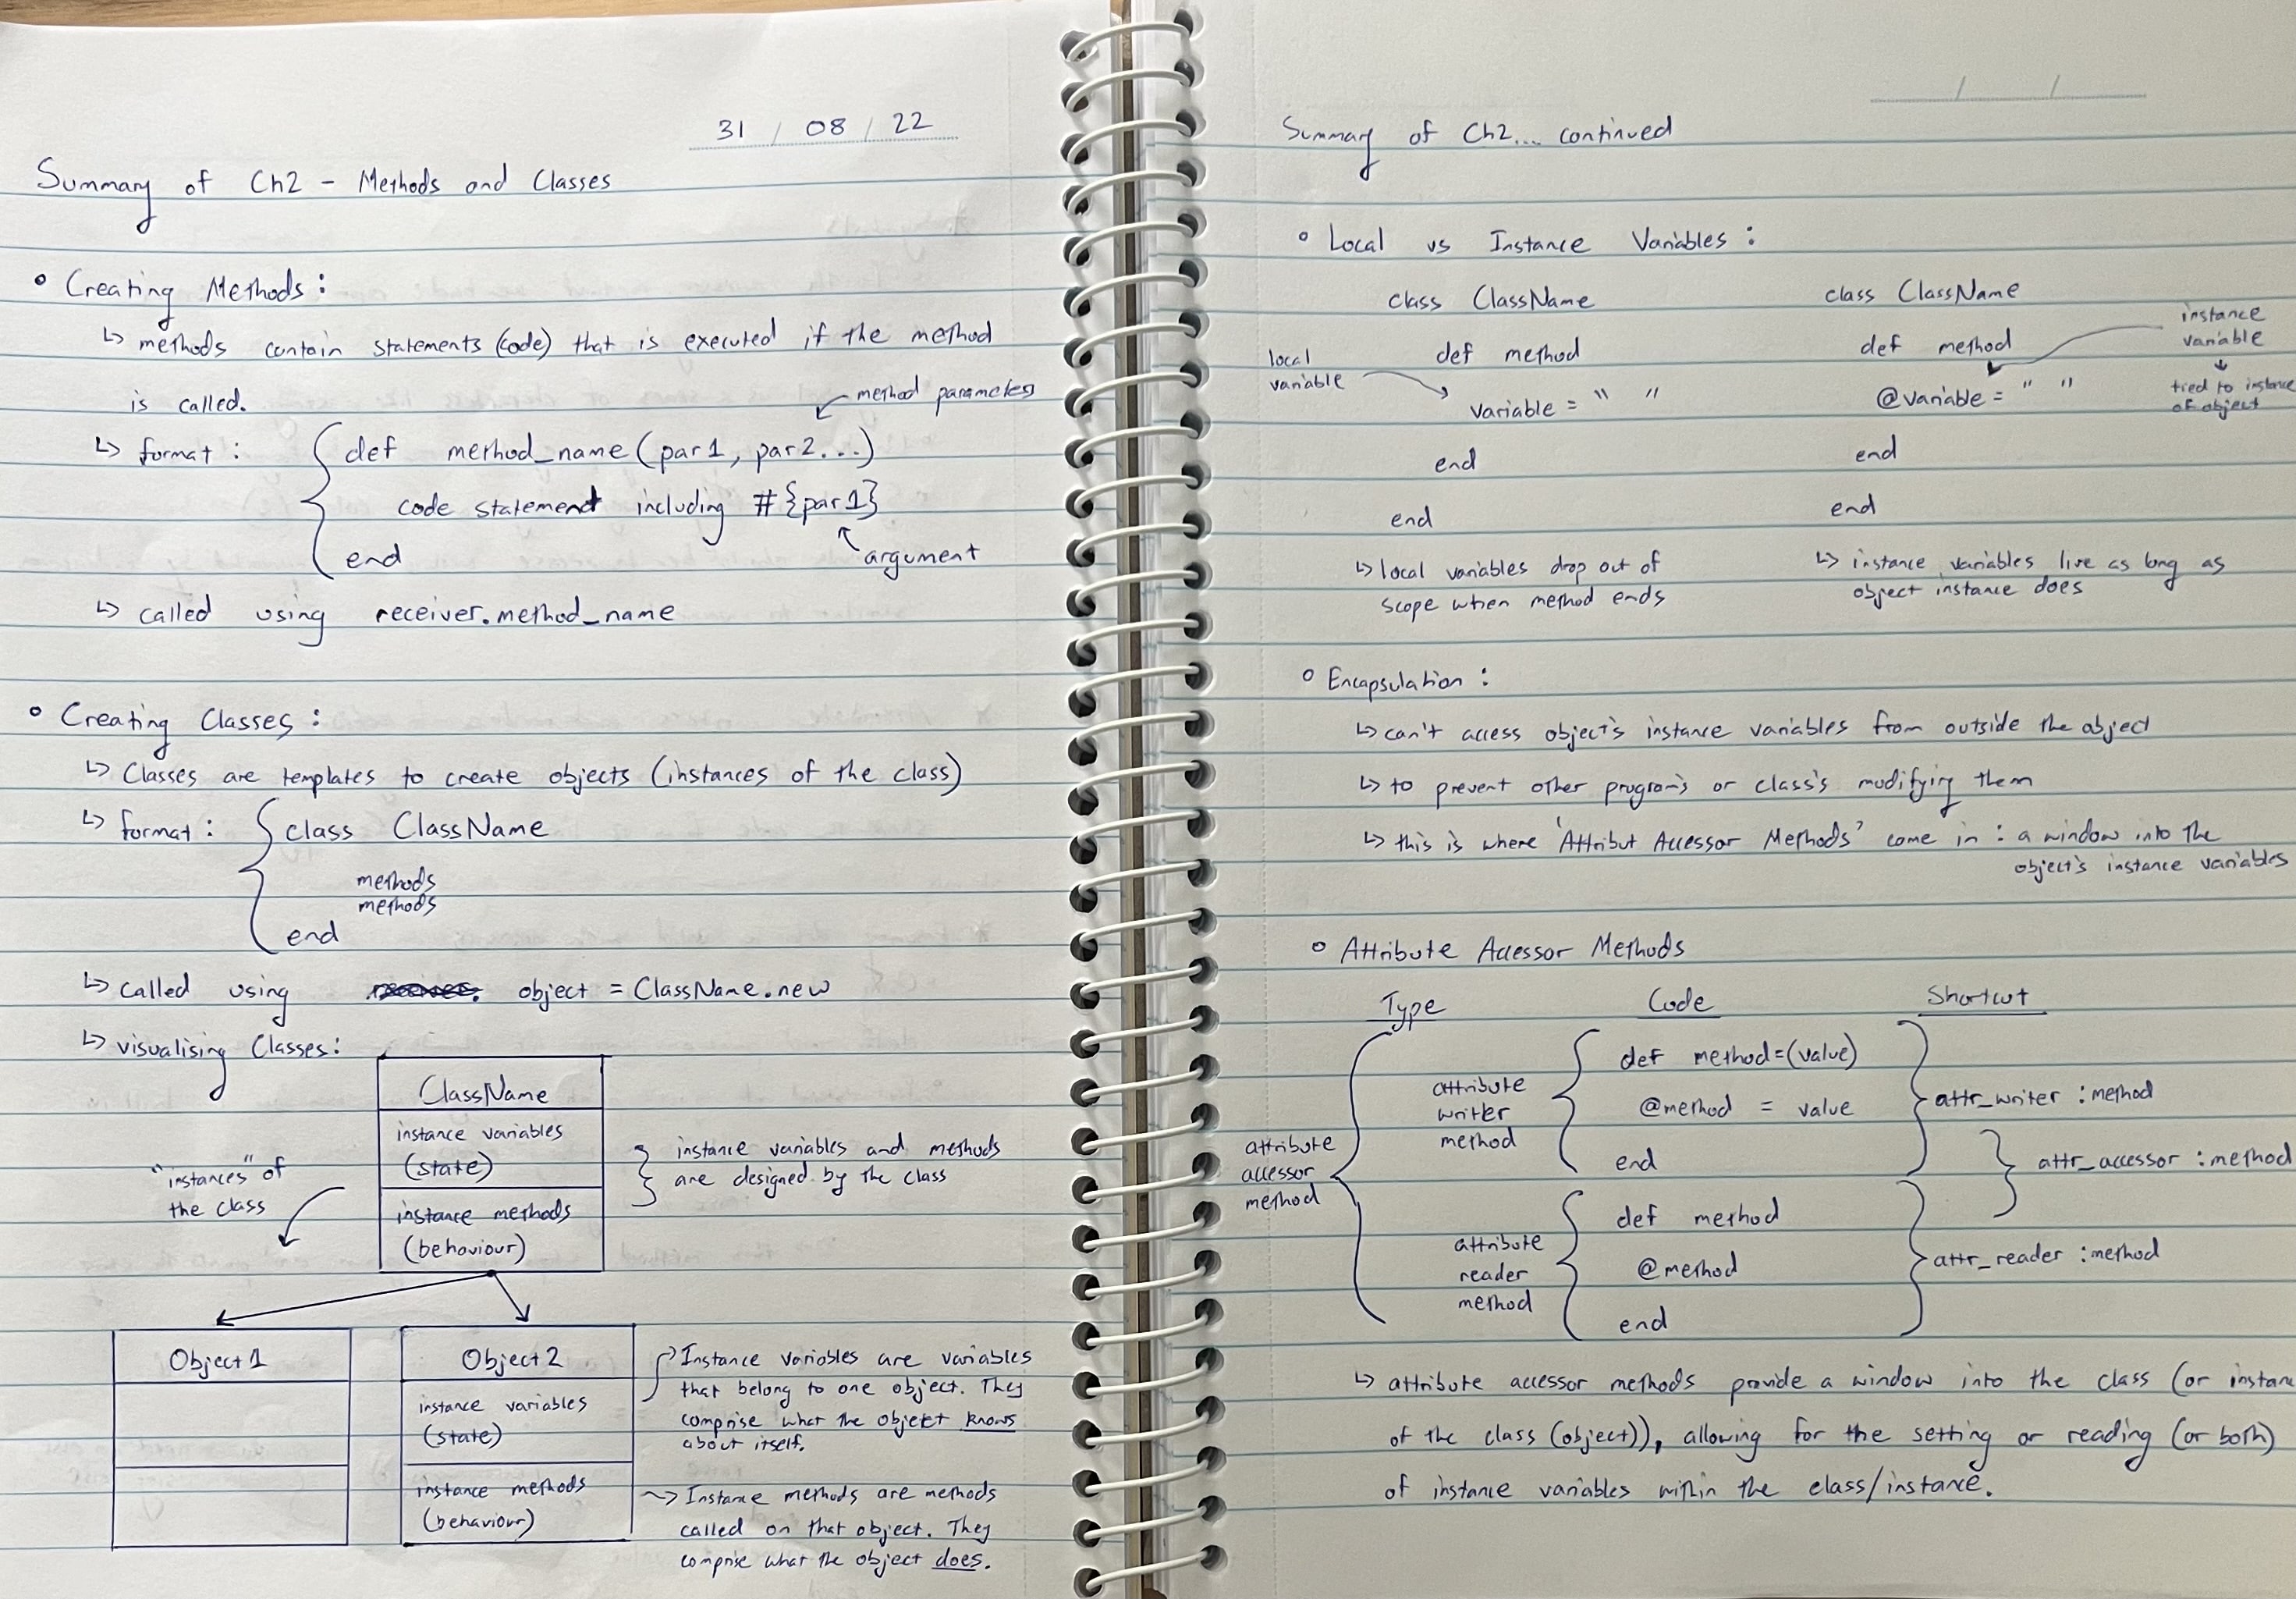 31 / 08 / 22
Summary of Ch2 - Methods and Classes
Creating Methods:
↳ methods contain statements (code) that is executed if the method
is called.
method parameters
↳ format: def method_name (par1, par2...)
code statement including #{par1}
end
argument
↳ called using receiver.method_name
Creating Classes:
↳ Classes are templates to create objects (instances of the class)
↳ format: class ClassName
methods
methods
end
↳ called using object = ClassName.new
↳ visualising Classes:
ClassName
instance variables
(state)
instance methods
(behaviour)
instance variables and methods
are designed by the class
"instances" of
the class
Object 1
Object 2
instance variables
(state)
instance methods
(behaviour)
Instance variables are variables
that belong to one object. They
comprise what the object knows
about itself.
Instance methods are methods
called on that object. They
comprise what the object does.
/ /
Summary of Ch2... continued
Local vs Instance Variables:
class ClassName
def method
local
variable
variable = " "
end
end
↳ local variables drop out of
scope when method ends
class ClassName
def method
instance
variable
↓
tied to instance
of object
@variable = " "
end
end
↳ instance variables live as long as
object instance does
Encapsulation:
↳ can't access object's instance variables from outside the object
↳ to prevent other program's or class's modifying them
↳ this is where 'Attribut Accessor Methods' come in: a window into the
object's instance variables
Attribute Accessor Methods
Type Code Shortcut
attribute
accessor
method
attribute
writer
method
def method=(value)
@method = value
end
attr_writer :method
attr_accessor :method
attribute
reader
method
def method
@method
end
attr_reader :method
↳ attribute accessor methods provide a window into the class (or instan
of the class (object)), allowing for the setting or reading (or both)
of instance variables within the class/instance.